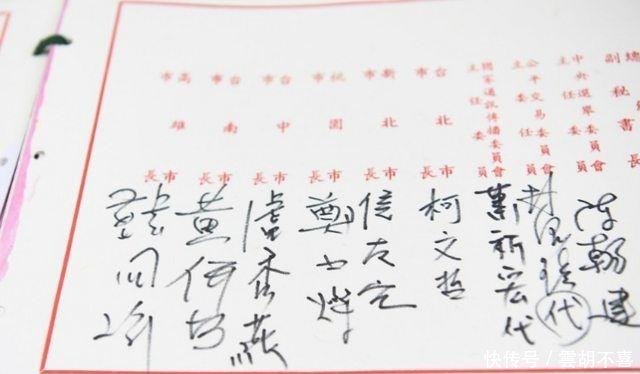 副秘書長
陳朝建
中央選舉委員會
主任委員
代
公平交易委員會
主任委員
蕭祈宏代
國家通訊傳播委員會
主任委員
台北市
市長
柯文哲
新北市
市長
侯友宜
桃園市
市長
鄭文燦
台中市
市長
盧秀燕
台南市
市長
黃偉哲
高雄市
市長
韓國瑜
快传号／雲胡不喜